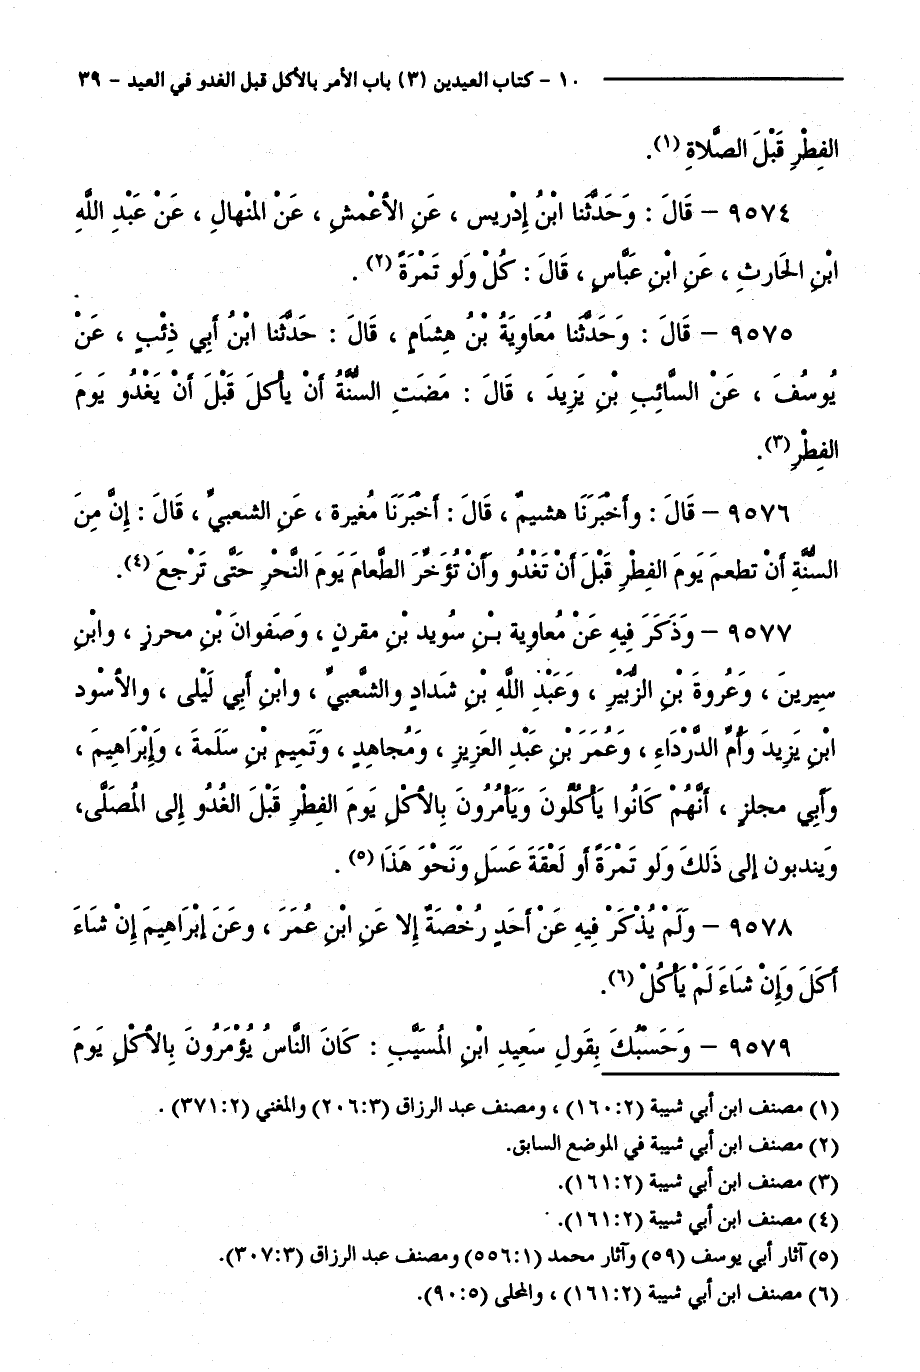 ١٠ - كتاب العيدين (٣) باب الأمر بالأكل قبل الغدو في العيد - ٣٩
الفِطْرِ قَبْلَ الصَّلاةِ (١).
٩٥٧٤ - قَالَ : وَحَدَّثَنا ابْنُ إِدْرِيس ، عَنِ الأعْمشِ ، عَنْ المنْهالِ ، عَنْ عَبْدِ اللَّهِ
ابْنِ الحَارثِ ، عَنِ ابْنِ عَبَّاسٍ ، قَالَ : كُلْ وَلو تَمْرَةً (٢) .
٩٥٧٥ - قَالَ : وَحَدَّثَنا مُعَاوِيَةُ بْنُ هِشَامٍ ، قَالَ : حَدَّثَنا ابْنُ أَبِي ذِئْبٍ ، عَنْ
يُوسُفَ ، عَنْ السَّائِبِ بْنِ يَزِيدَ ، قَالَ : مَضَتِ السُّنَّةُ أَنْ يأكلَ قَبْلَ أَنْ يَغْدُو يَومَ
الفِطْرِ (٣).
٩٥٧٦ - قَالَ : وأَخْبَرَنَا هشيمٌ ، قَالَ : أَخْبَرَنَا مُغيرة ، عَنِ الشعبيِّ ، قَالَ : إِنَّ مِنَ
السُّنَّةِ أَنْ تطعمَ يَومَ الفِطْرِ قَبْلَ أَنْ تَغْدُو وَأَنْ تُؤَخِّرَ الطَّعامَ يَومَ النَّحْرِ حَتَّى تَرْجعَ (٤).
٩٥٧٧ - وَذَكَرَ فِيهِ عَنْ مُعاوِية بـنِ سُويد بْنِ مقرنٍ ، وَصَفوانَ بْنِ محرزٍ ، وابْنِ
سِيرينَ ، وَعُروةَ بْنِ الزُّبَيْرِ ، وَعَبْدِ اللَّهِ بْنِ شدادٍ والشَّعبيِّ ، وابْنِ أَبِي لَيْلى ، والأسْود
ابْنِ يَزِيدَ وَأُمِّ الدَّرْدَاءِ ، وَعُمَرَ بْنِ عَبْدِ العَزِيزِ ، وَمُجاهِدٍ ، وَتَمِيمِ بْنِ سَلَمةَ ، وَإِبْرَاهِيمَ ،
وَأَبِي مجلزٍ ، أَنَّهُمْ كَانُوا يَأكُلُونَ وَيَأمُرُونَ بِالأكْلِ يَومَ الفِطْرِ قَبْلَ الغُدُو إِلى المُصَلَّى،
وَيندبون إِلى ذَلكَ وَلو تَمْرَةً أو لَعْقَةَ عَسَلٍ وَنَحْوَ هَذَا (٥) .
٩٥٧٨ - وَلَمْ يُذْكَرْ فِيهِ عَنْ أَحَدٍ رُخْصَةٌ إِلا عَنِ ابْنِ عُمَرَ ، وعَنَ إِبْرَاهِيمَ إِنْ شاءَ
أَكَلَ وَإِنْ شَاءَ لَمْ يَأكُلْ (٦).
٩٥٧٩ - وَحَسْبُكَ بِقَولِ سَعِيدِ ابْنِ المُسَيَّبِ : كَانَ النَّاسُ يُؤْمَرُونَ بِالأكْلِ يَومَ
(١) مصنف ابن أبي شيبة (١٦٠:٢) ، ومصنف عبد الرزاق (٢٠٦:٣) والمغني (٣٧١:٢) .
(٢) مصنف ابن أبي شيبة في الموضع السابق.
(٣) مصنف ابن أبي شيبة (١٦١:٢).
(٤) مصنف ابن أبي شيبة (١٦١:٢).
(٥) آثار أبي يوسف (٥٩) وآثار محمد (٥٥٦:١) ومصنف عبد الرزاق (٣٠٧:٣).
(٦) مصنف ابن أبي شيبة (١٦١:٢) ، والمحلى (٩٠:٥).